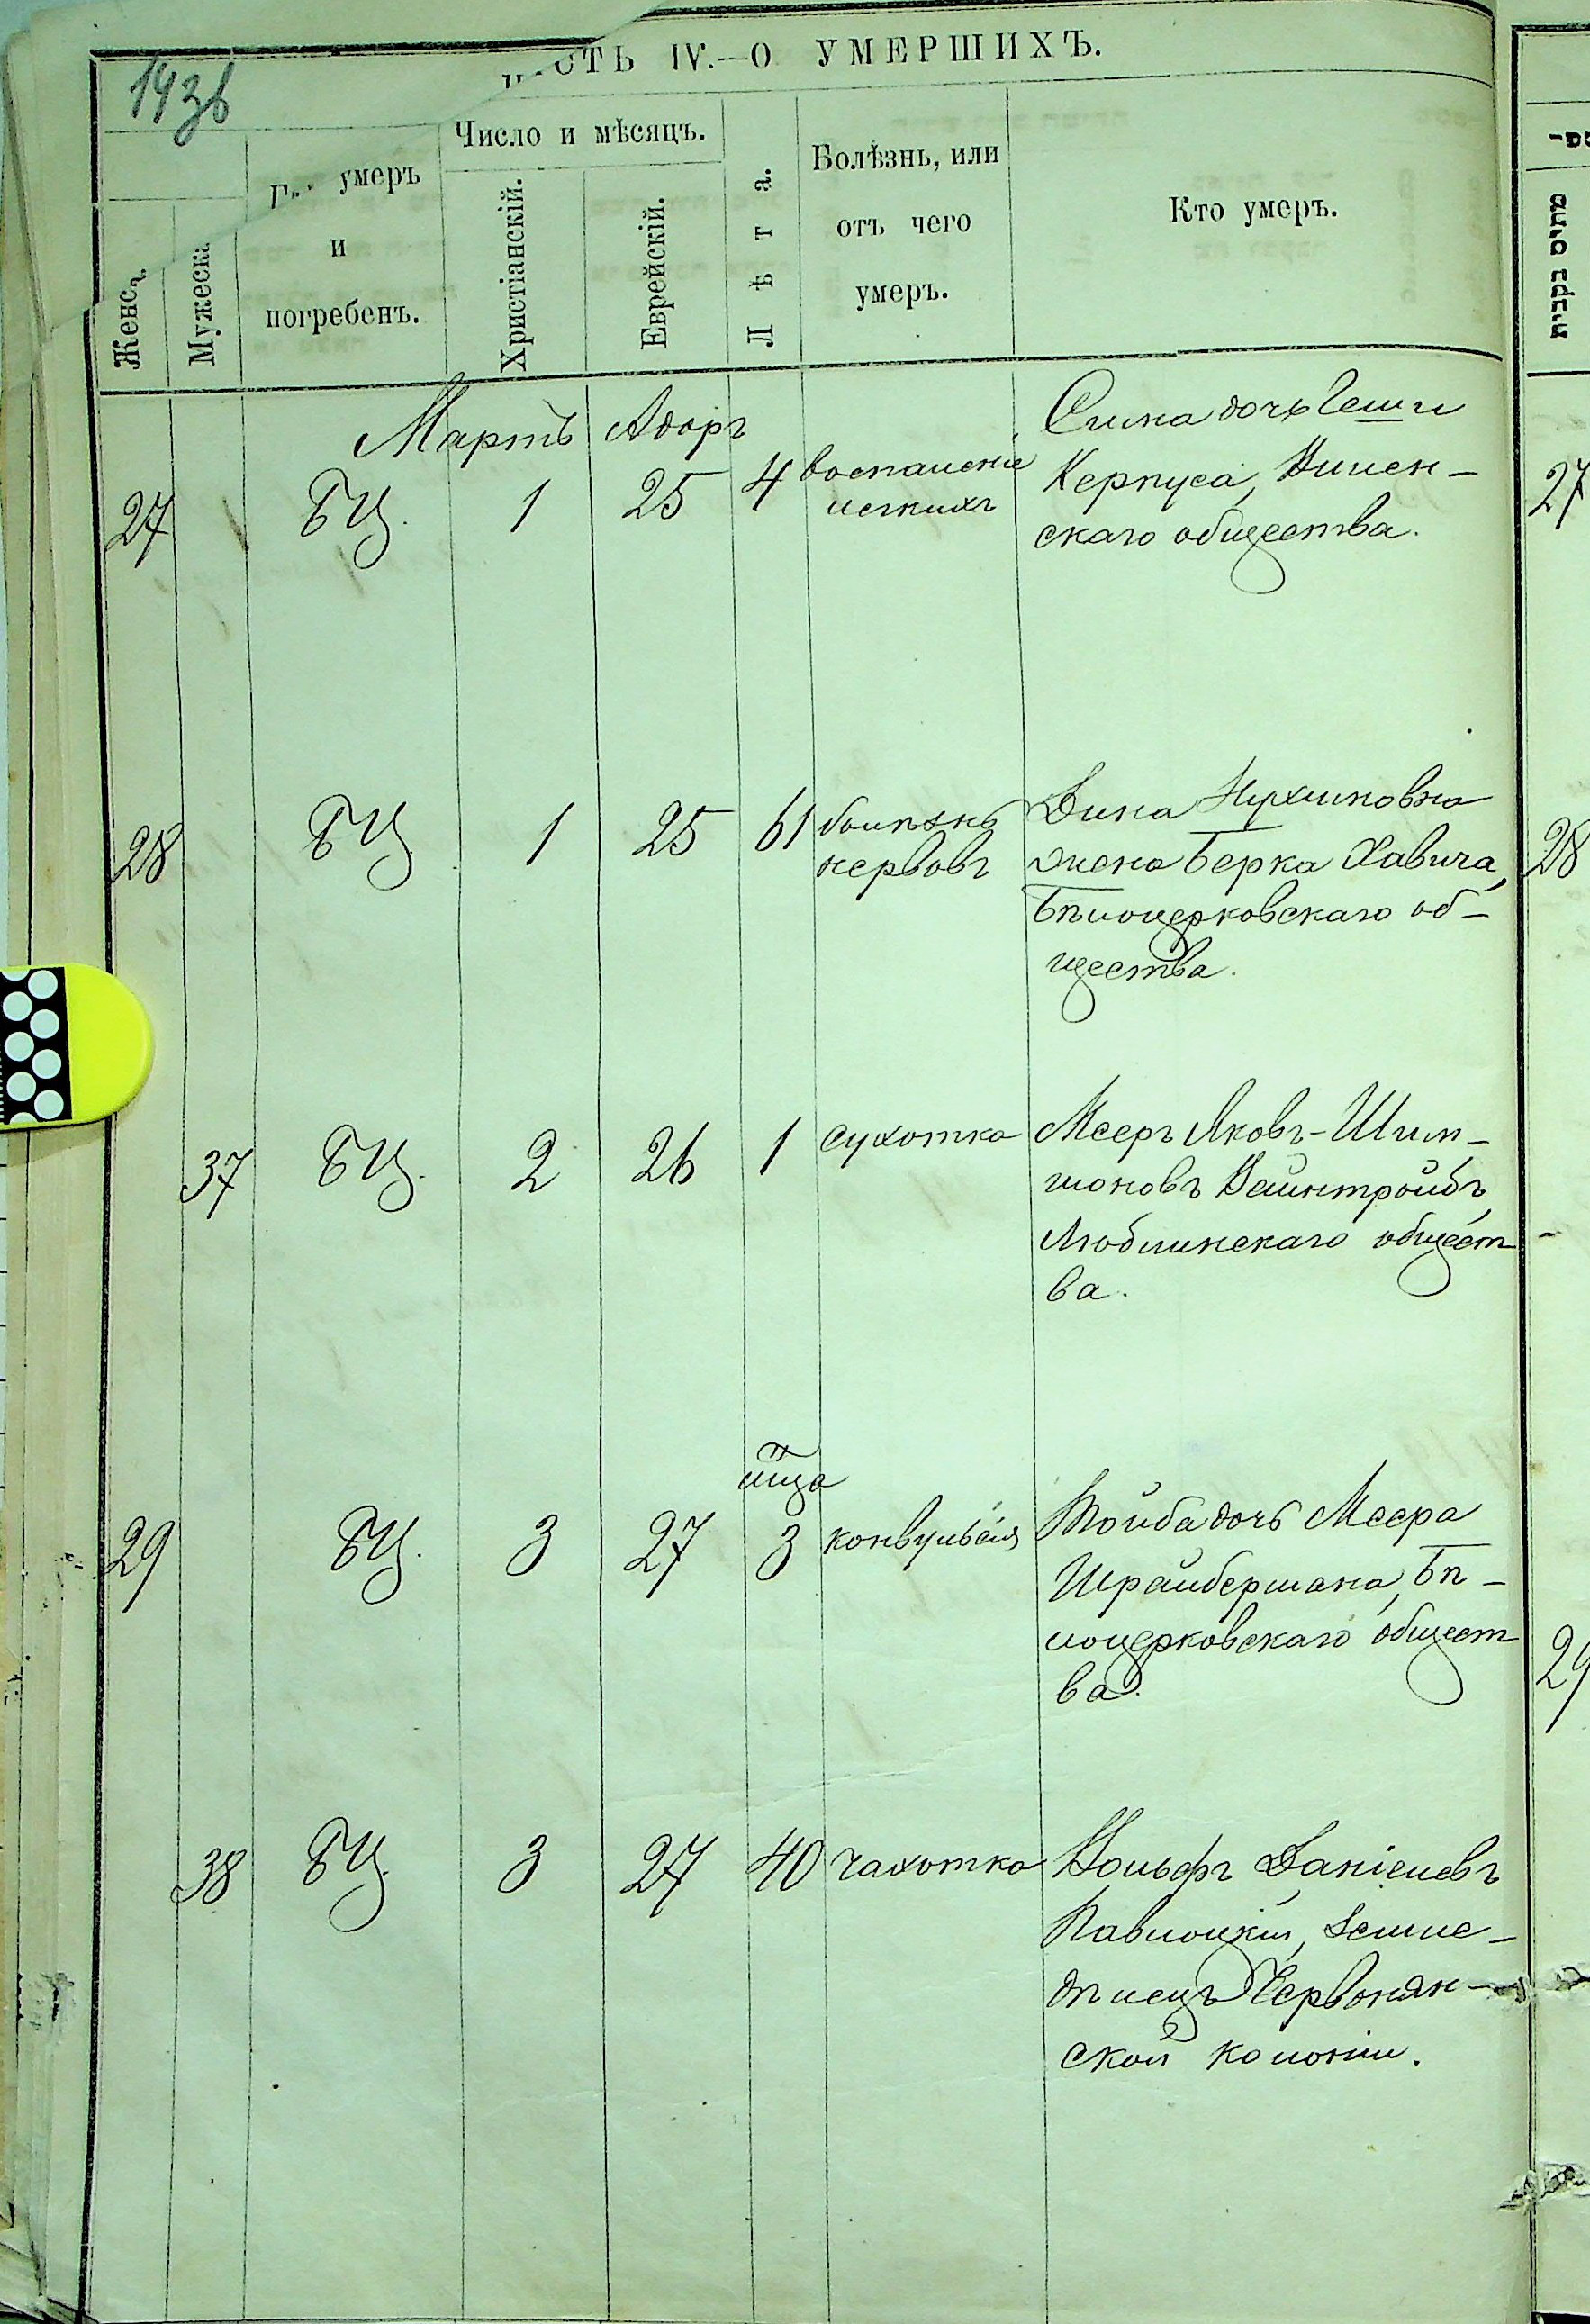 143об
ЧАСТЬ IV.—О УМЕРШИХЪ.
Число и мѣсяцъ.
Женск.
Мужеска
Гдѣ умеръ
и
погребенъ.
Христіанскій.
Еврейскій.
Лѣта.
Болѣзнь, или
отъ чего
умеръ.
Кто умеръ.
Мартъ Адаръ
27 БЦ. 1 25 4 воспаленіе
легкихъ
Сима дочь Геши
Керпуса,
скаго общества.
27
28 БЦ. 1 25 61 болѣзнь
нервовъ
Дина Нухимовна
жена Берка Хавича,
Бѣлоцерковскаго об-
щества.
28
37 БЦ. 2 26 1 сухотка
Мееръ Яковъ-Шим-
шоновъ Вайнтройбъ,
Люблинскаго общест-
ва.
29 БЦ. 3 27 м-ца 3 конвульсія
Тойба дочь Меера
Шрайбермана, Бѣ-
лоцерковскаго общест
ва.
29
38 БЦ. 3 27 40 чахотка
Вольфъ Даніелевъ
Павлоцкій, Земле-
дѣлецъ Червонян-
ской колоніи.